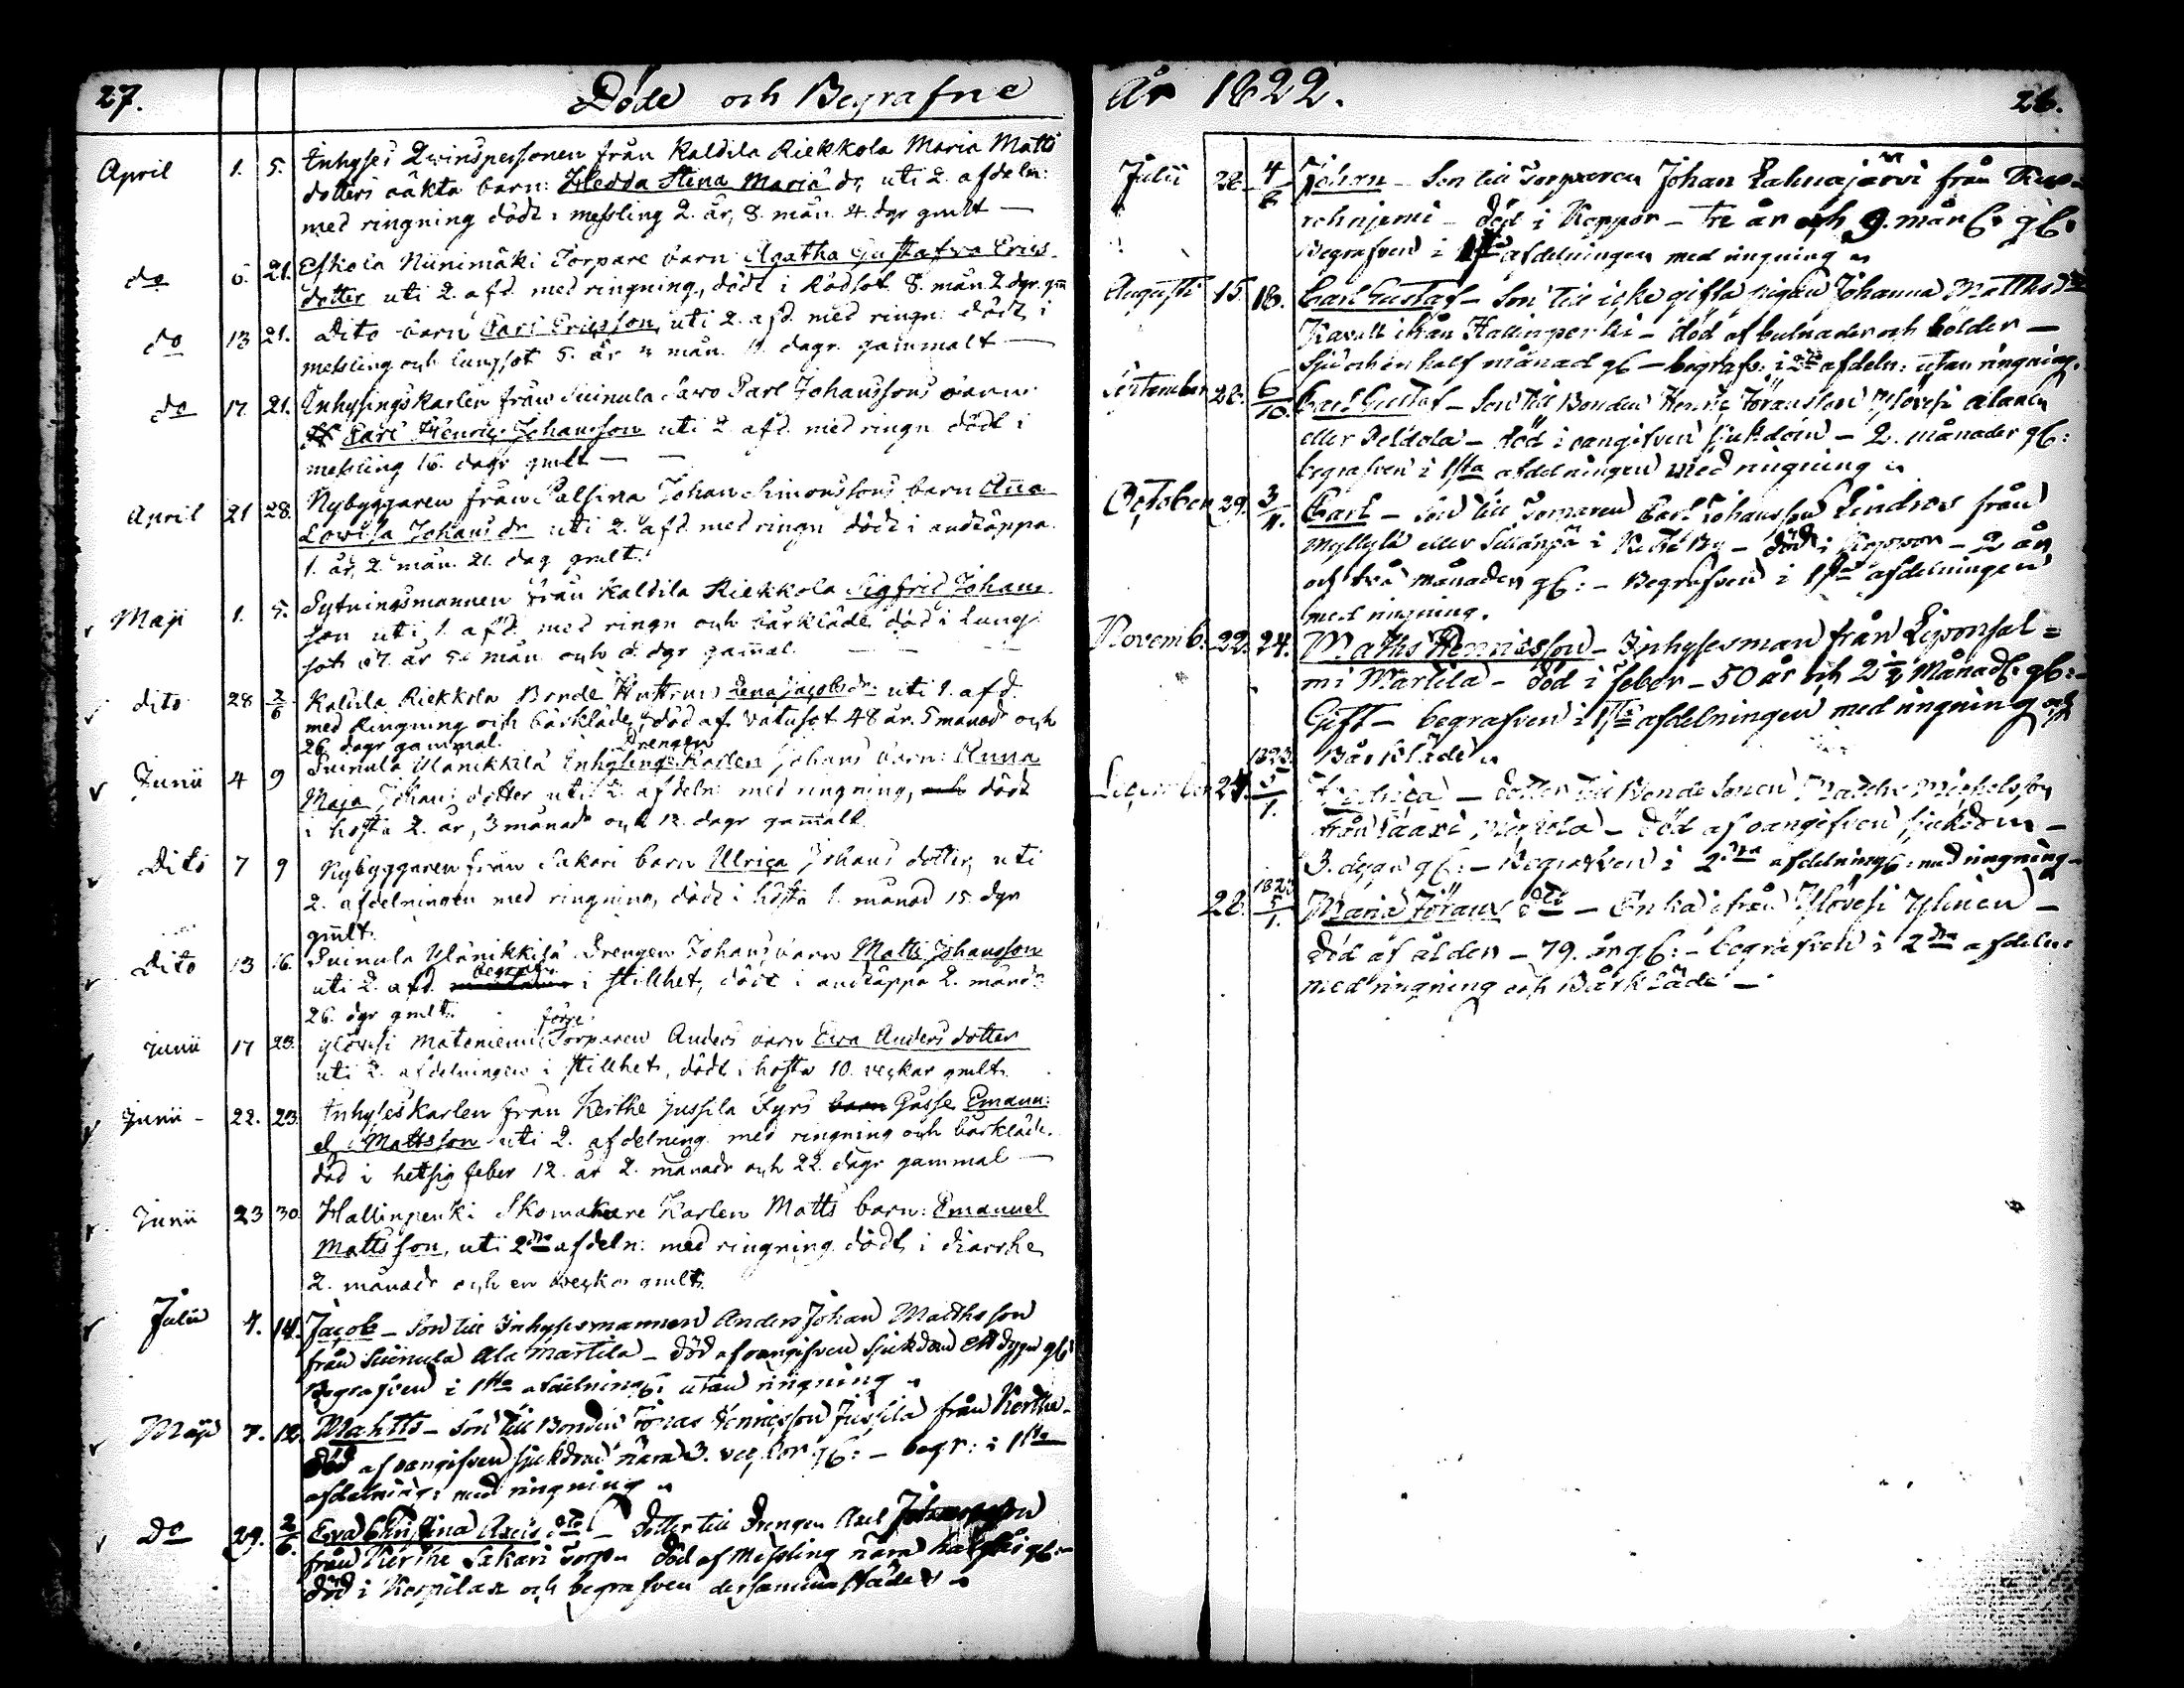 27.
Döde och Begrafne
April 1. 5. Inhyses Qwinspersonen från Kaldila Riekkola Maria Matts
dotters oäkta barn: Hedda Stina Maria dr uti 2. afdeln:
med ringning dödt i messling 2. år, 8. mån. 4. dgr gmlt —
do 6. 21. Eskola Niinimäki Torpare barn Agatha Gustafva Erics
dotter uti 2. afd. med ringning, dödt i Rödsot 8. mån. 2 dgr. gm
do 13 21. Dito barn Carl Ericsson, uti 2. afd. med ringn: dödt i
messling och lungsot 5. år mån. 11. dagr. gammalt —
do 17. 21. Inhysingskarlen från Suinula Savo Carl Johanssons barn
Carl Henric Johansson uti 2. afd. med ringn dödt i
messling 16. dagr gmlt —
April 21 28. Nybyggaren från Palsina Johan Simonssons barn Anna
Lovisa Johans dr uti 2. afd. med ringn dödt i andtäppa
1. år, 2. mån. 21. dag gmlt.
Maji 1. 5. Sytningsmannen från Kaldila Riekkola Sigfrid Johans
son uti 1. afd. med ringn och bårkläde död i Lung
sot 67. år 5. mån och dgr gamal. —
dito 28 2/6 Kaldila Riekkola Bonde Hustrun Lena Jacobs dr uti 1. afd.
med Ringning och bårkläde, död af vatusot 48 år. 5 månadr och
26 dagr gammal. Drengen
Junii 4 9 Suinula Ulänikkilä Inhysings Karlen Johans barn: Anna
Maja Johans dotter uti 2. afdeln: med ringning, och dödt
i hosta 2. år, 3 månadr och 12. dagr gamalt.
Dito 7 9 Nybyggaren från Sakari barn Ulrica Johans dotter, uti
2. afdelningen med ringning, dödt i hosta 1. månad 15. dgr
gmlt.
Dito 13 16. Suinula Ylänikkilä Drengen Johans barn Matts Johansson
uti 2. afd. begrafv. i stillhet, dödt i andtäppa 2. månr
26. dgr gmlt. förre
Junii 17 23. Ylövesi Mataniemi Torparen Anders barn Eva Anders dotter
uti 2. afdelningen i stillhet, dödt i hosta 10. veckor gmlt.
Junii - 22. 23. Inhyses Karlen från Keithe Jussila Fyrs barn Gosse Emanu:
el Mattsson uti 2. afdelning med ringning och bårkläde.
död i hetsig feber 12. år 2. månadr och 22. dagr gammal —
Junii 23 30. Hallinpenki Skomakare Karlen Matts barn: Emanuel
Mattsson, uti 2dra afdeln: med ringning dödt i diarrhe
2. månadr och en vecka gmlt.
Julii 4. 14. Jacob - Son till Inhysesmannen Anders Johan Matthsson
från Suinula Ala Martila - död af oangifven Sjukdom ett dygn gl:
Begrafven i 1sta afdelning: utan ringning
Maji 7. 12. Mahtts - Son till Bonden Jonas Henricsson Jussila från Kerthe -
död af oangifven sjukdom nära 3. veckor gl: - begr: i 1sta
afdelning: med ringning
Do 29. 2/6. Eva Christina Axels dtr - Dotter till Drengen Axel Johansson
från Kerthe Sakari Torp. död af Messling nära halft år gl:
död i Korpilax och begrafven dersamma städes
År 1822.
28.
Julii 28. 4/8 Johan - Son till Torparen Johan Lahnajärvi från
- död i Koppor - tre år och 9. mån gl:
Begrafven i 1sta afdelningen med ringning
Augusti 15. 18. Carl Gustaf - Son till icke gifta pigan Johanna Matthsdtr
ifrån Hallinpenki - död af bulnader och bölder -
sju och en half månad gl - begrafv: i 2dra afdeln: utan ringning.
September 28. 6/10. Carl Gustaf - Son till Bonden Henric Göransson Ylövesi
eller Peldola - död i oangifven sjukdom - 2. månader gl:
begrafven i 1sta afdelningen med ringning
October 29. 3/11. Carl - Son till Torparen Carl Johansson Lindros från
Myllylä eller Sillanpä i By - död i Koppor - 2 år
och två månader gl: - Begrafven i 1sta afdelningen
med ringning.
Novemb. 22. 24. Maths Henricsson - Inhysesman från Livonsal =
mi Martila - död i feber - 50 år och 2 1/2 Månad gl: -
Gift - begrafven i 1sta afdelningen med ringning och
Bårkläde
1823.
December 24. 5/1. - dotter till Bonde Sonen Matths Michelsson
från Saari - död af oangifven sjukdom -
3. dygn gl: - Begrafven i 2dra afdelning: med ringning -
1823
28. 5/1. Maria Görans dtr - Enka ifrån Ylövesi Ylinen -
död af ålder - 79. år gl: - begrafven i 2dra afdeln:
med ringning och Bårkläde -